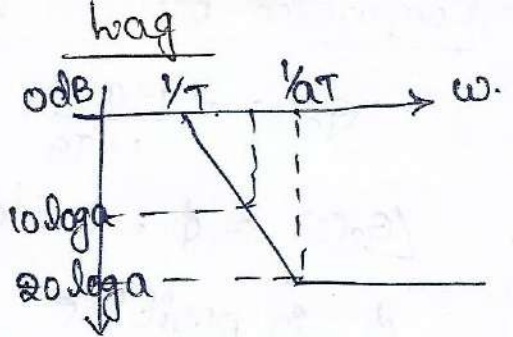 Lag
0dB 1/T 1/aT ω.
10 log a
20 log a